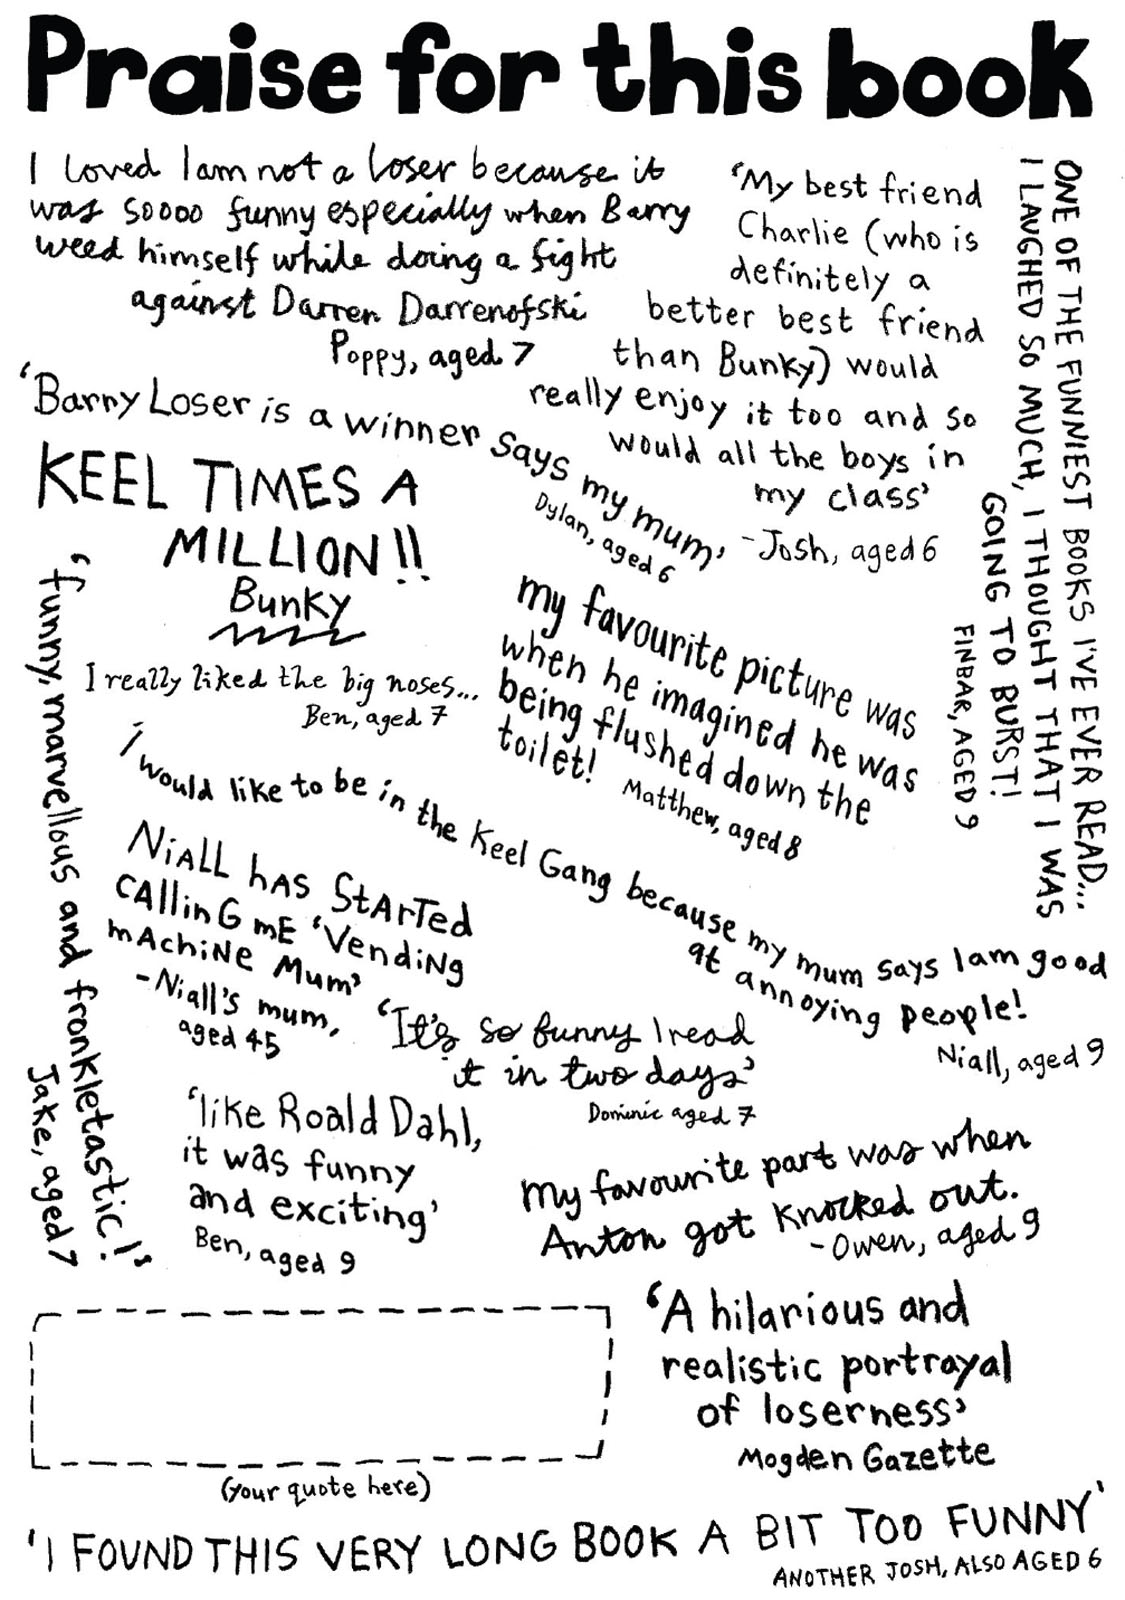 Praise for this book
I loved I am not a loser because it
was soooo funny especially when Barry
weed himself while doing a fight
against Darren Darrenofski
Poppy, aged 7
'My best friend
Charlie (who is
definitely a
better best friend
than Bunky) would
really enjoy it too and so
would all the boys in
my class'
-Josh, aged 6
ONE OF THE FUNNIEST BOOKS I'VE EVER READ...
I LAUGHED SO MUCH, I THOUGHT THAT I WAS
GOING TO BURST!
FINBAR, AGED 9
'Barry Loser is a winner says my mum'
Dylan, aged 6
KEEL TIMES A
MILLION!!
Bunky
I really liked the big noses...
Ben, aged 7
my favourite picture was
when he imagined he was
being flushed down the
toilet!
Matthew, aged 8
'funny, marvellous and fronkletastic!'
Jake, aged 7
i would like to be in the Keel Gang because my mum says I am good
at annoying people!
Niall, aged 9
NiALL hAS StArTed
cAllinG mE 'VendiNg
mAchiNe Mum'
-Niall's mum,
aged 45
'It's so funny I read
it in two days'
Dominic aged 7
'like Roald Dahl,
it was funny
and exciting'
Ben, aged 9
My favourite part was when
Anton got knocked out.
-Owen, aged 9
(your quote here)
'A hilarious and
realistic portrayal
of loserness'
Mogden Gazette
'I FOUND THIS VERY LONG BOOK A BIT TOO FUNNY'
ANOTHER JOSH, ALSO AGED 6